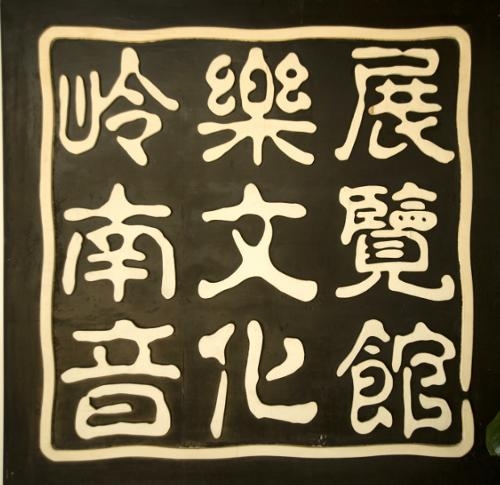 岭南音
樂文化
展覽館